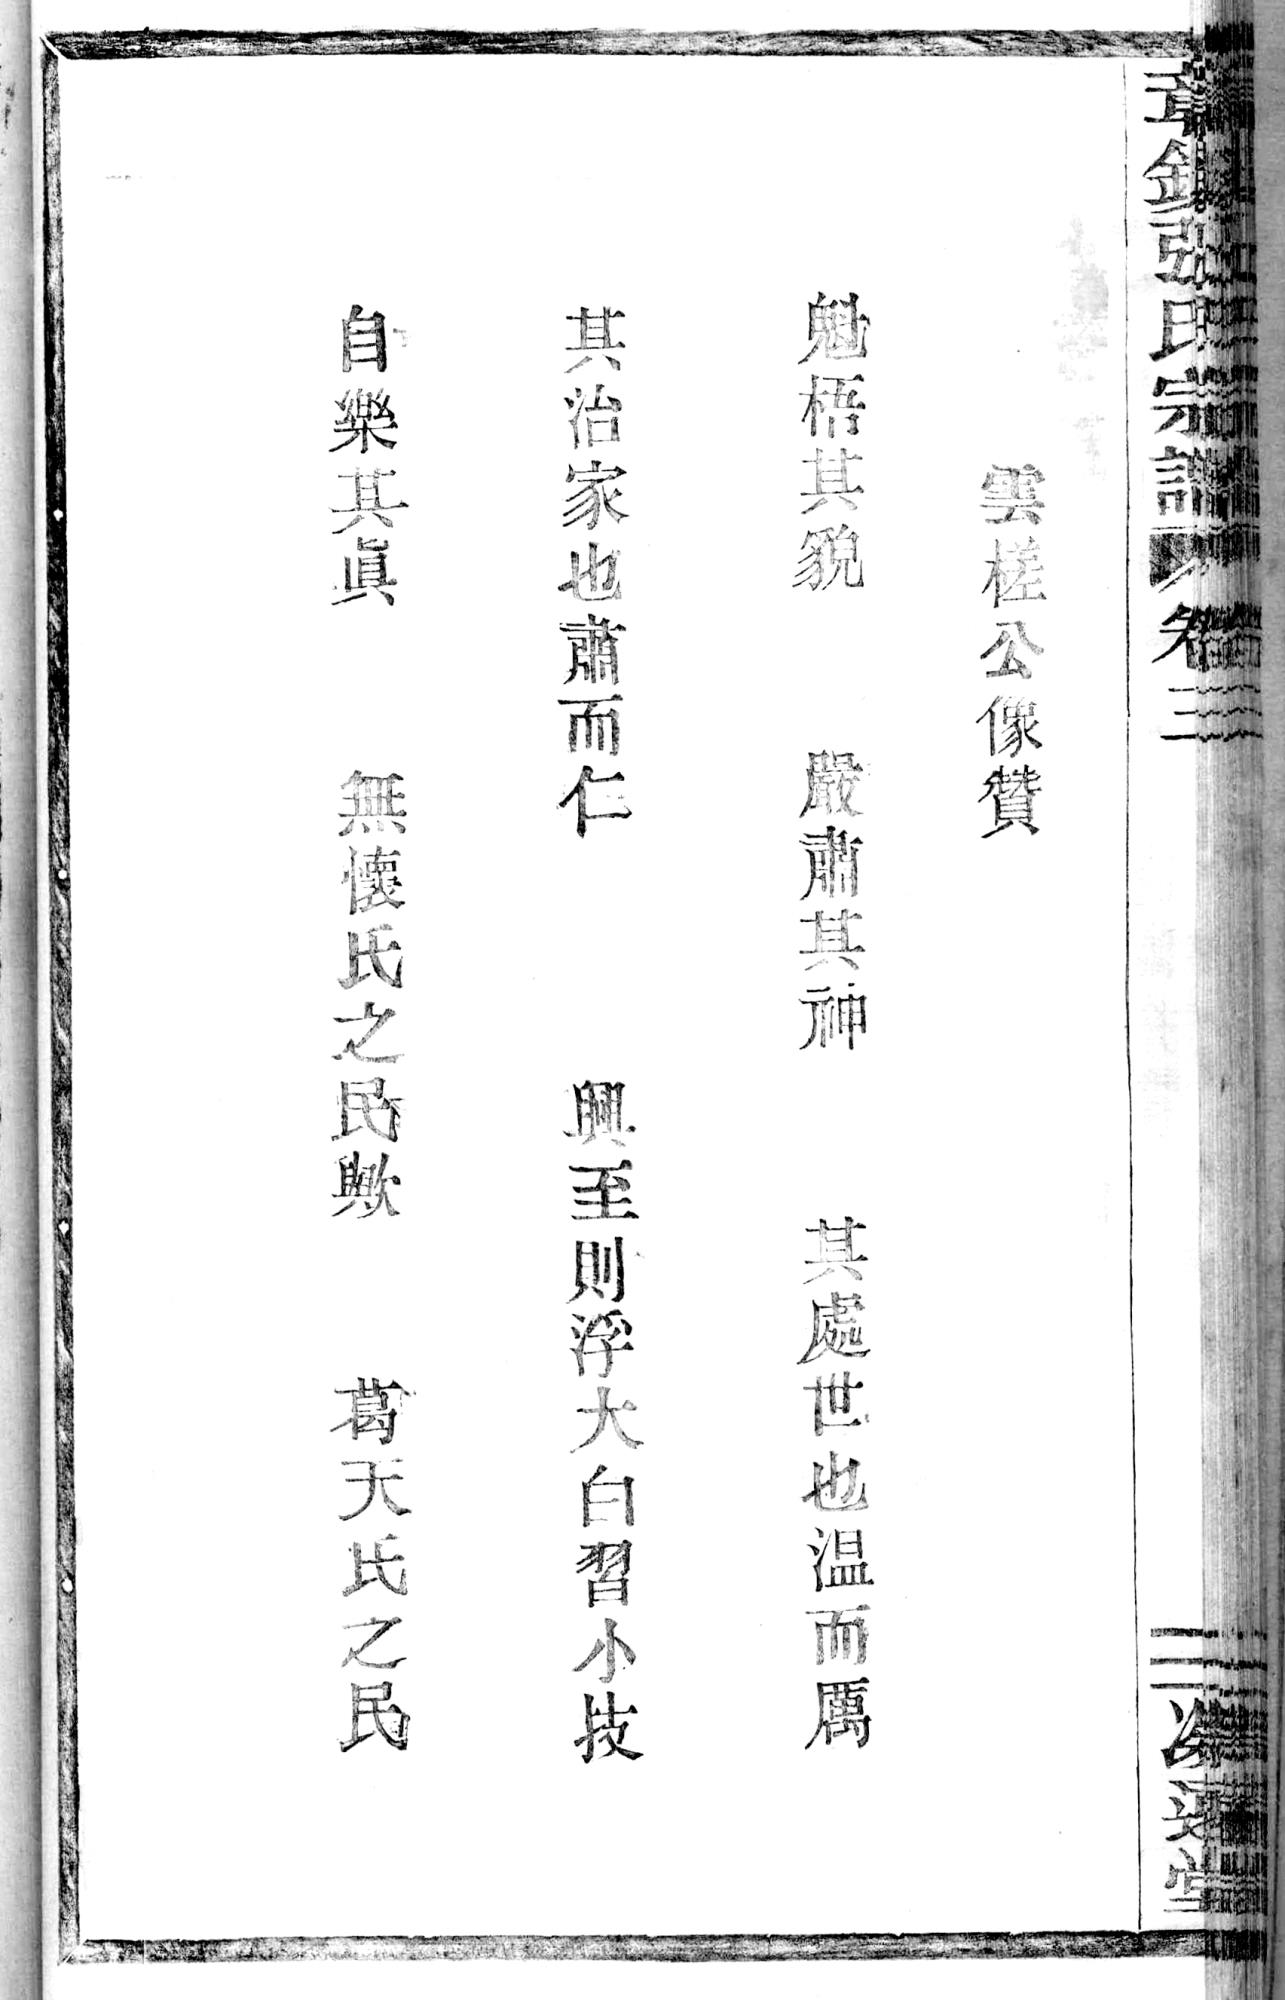 雲槎公像贊
魁梧其貌　嚴肅其神　其處世也溫而厲
其治家也肅而仁　興至則浮大白習小技
自樂其眞　無懷氏之民歟　葛天氏之民
張氏宗譜 卷三
堂